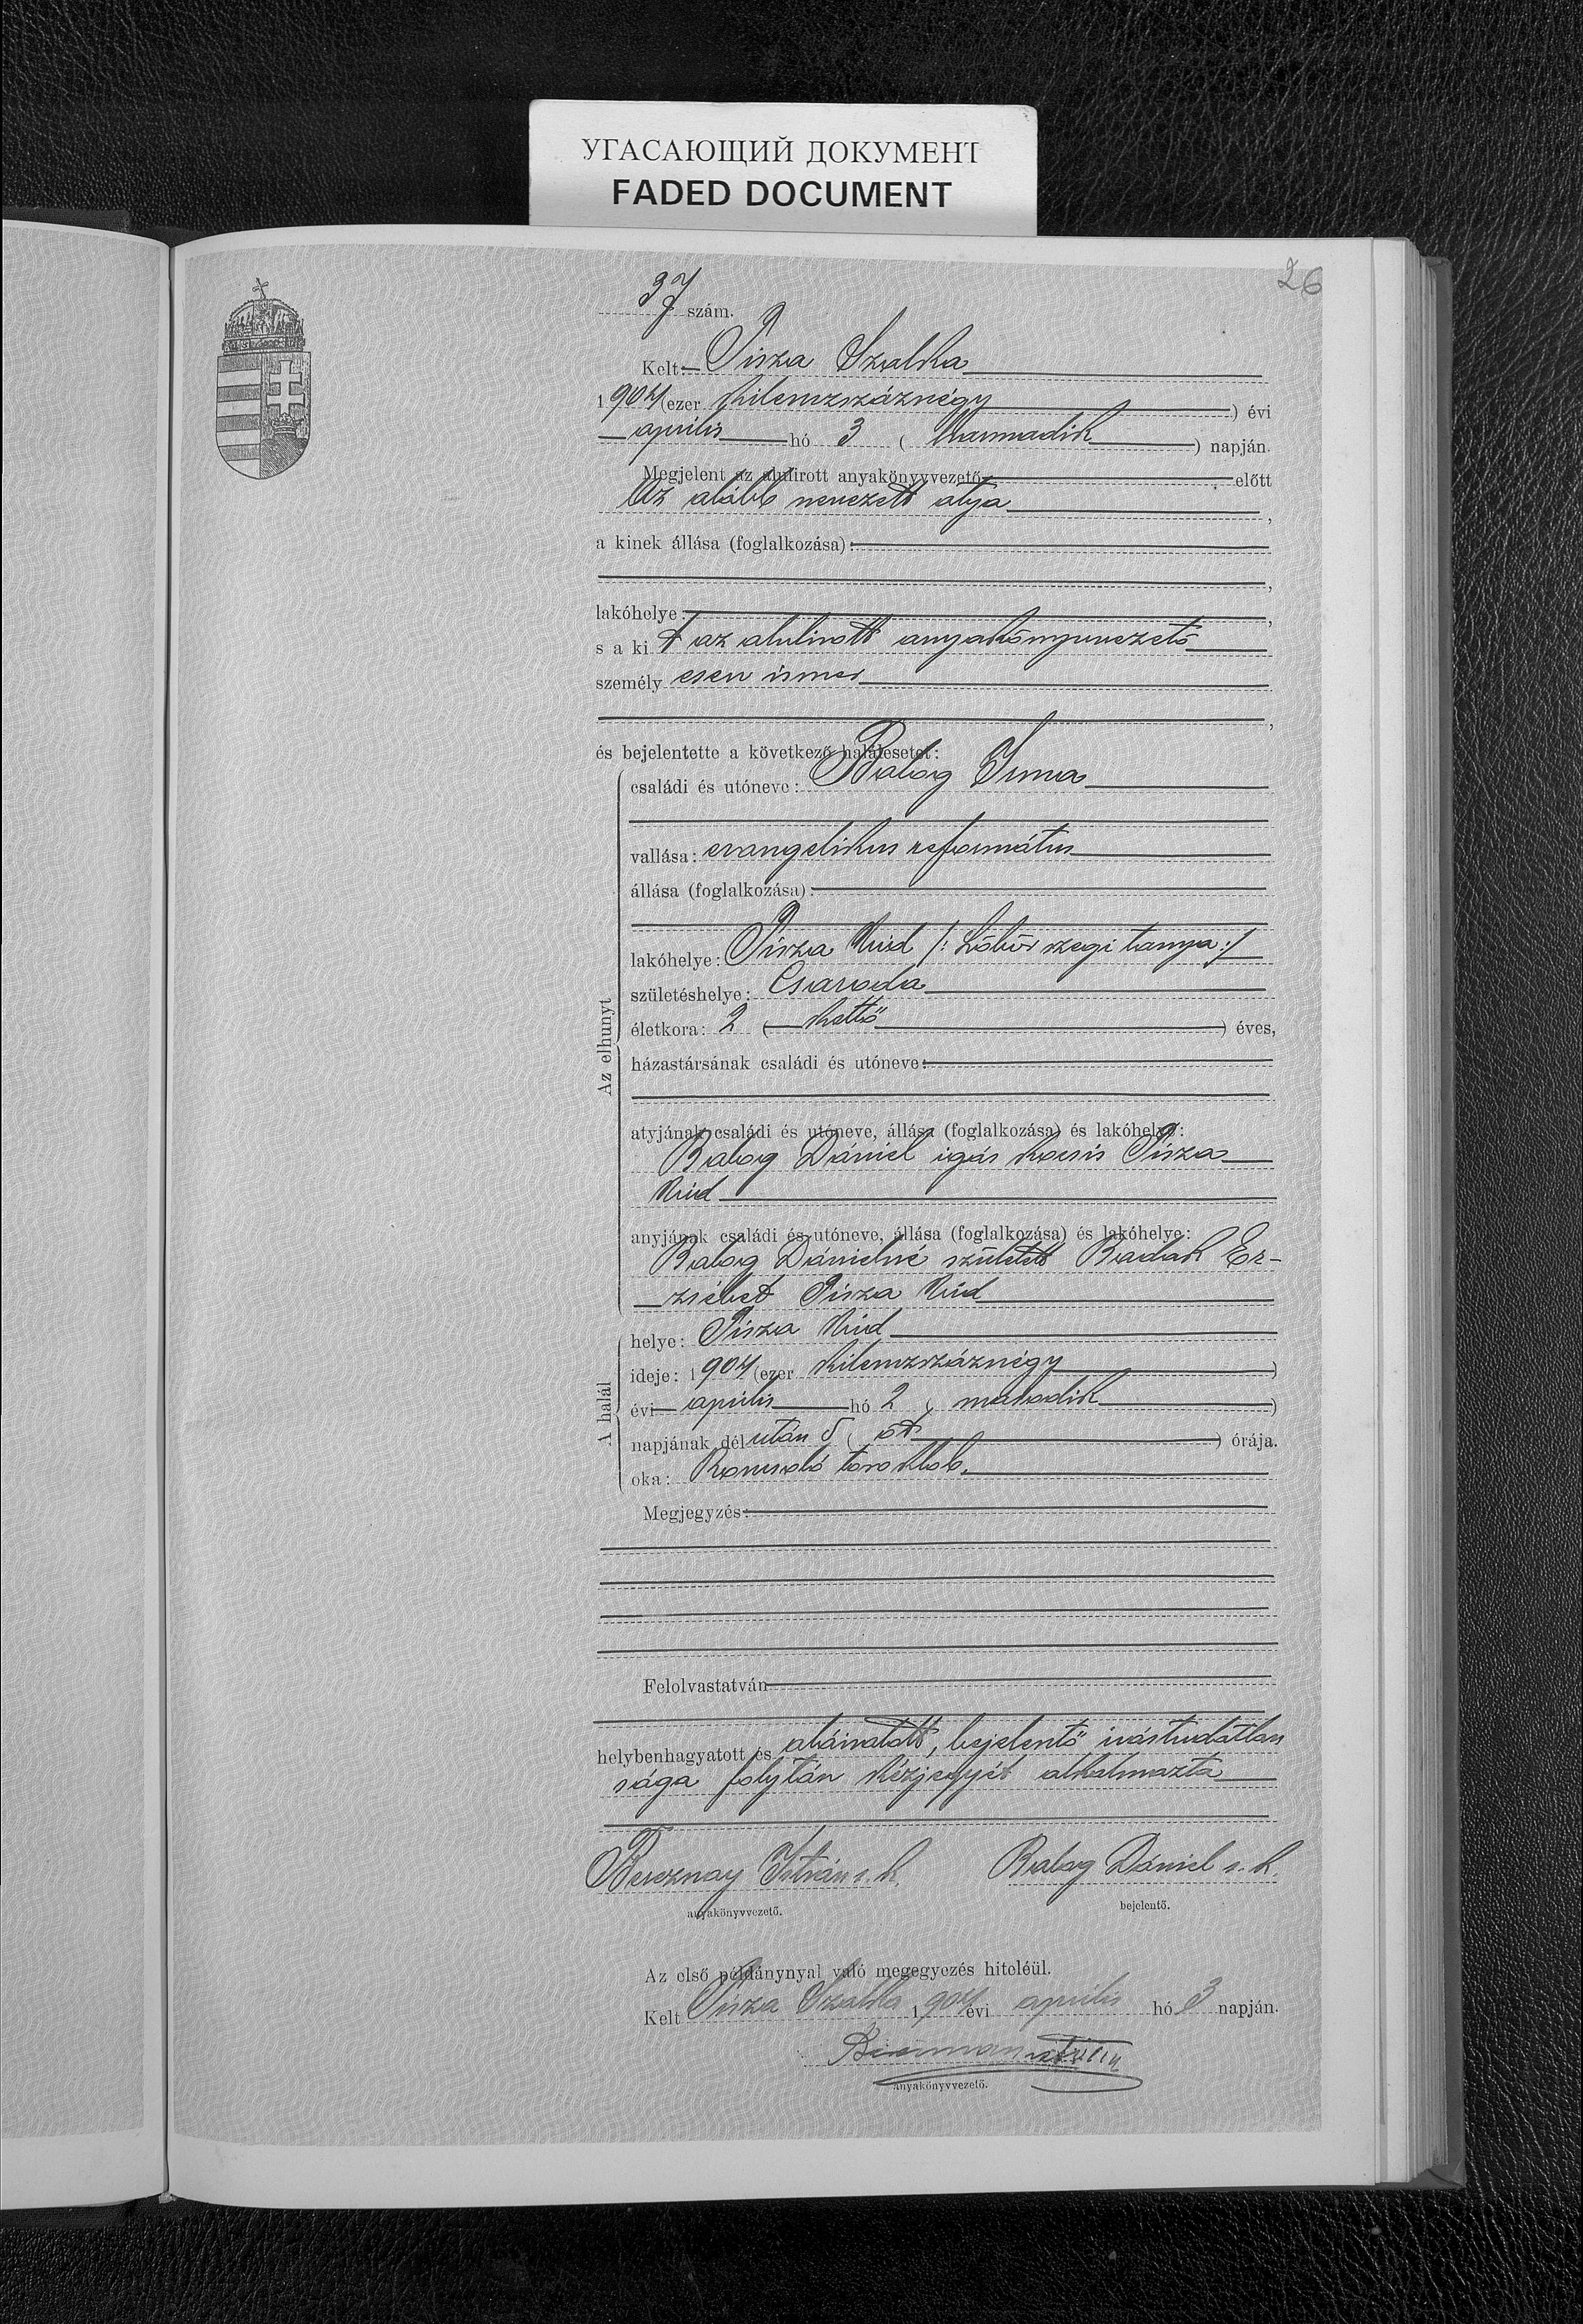 УГАСАЮЩИЙ ДОКУМЕНТ
FADED DOCUMENT
26
37 szám.
Kelt Tisza Szalka
1904 (ezer kilenczszáznégy) évi
április hó 3 (harmadik) napján.
Megjelent az alulirott anyakönyvvezető előtt
Az alább nevezett atya,
a kinek állása (foglalkozása):
lakóhelye:
s a kit az alulirott anyakönyvvezető
személyesen ismer
és bejelentette a következő halálesetet:
Az elhunyt
családi és utóneve: Balog Irma
vallása: evangelikus református
állása (foglalkozása):
lakóhelye: Tisza Vid /: szegi tanya :/
születéshelye: Csaroda
életkora: 2 (kettő) éves,
házastársának családi és utóneve:
atyjának családi és utóneve, állása (foglalkozása) és lakóhelye:
Balog Dániel igás kocsis Tisza
Vid
anyjának családi és utóneve, állása (foglalkozása) és lakóhelye:
Balog Dánielné született Badak Er-
zsébet Tisza Vid
A halál
helye: Tisza Vid
ideje: 1904 (ezer kilenczszáznégy)
évi április hó 2 (második)
napjának dél után 5 (öt) órája.
oka: Roncsoló toroklob.
Megjegyzés:
Felolvastatván
helybenhagyatott és aláiratott, bejelentő irástudatlan
sága folytán kézjegyét alkalmazta
Bereznay István s. k. Balog Dániel s. k.
anyakönyvvezető. bejelentő.
Az első példánynyal való megegyezés hiteléül.
Kelt Tisza Szalka 1904 évi április hó 3 napján.
anyakönyvvezető.